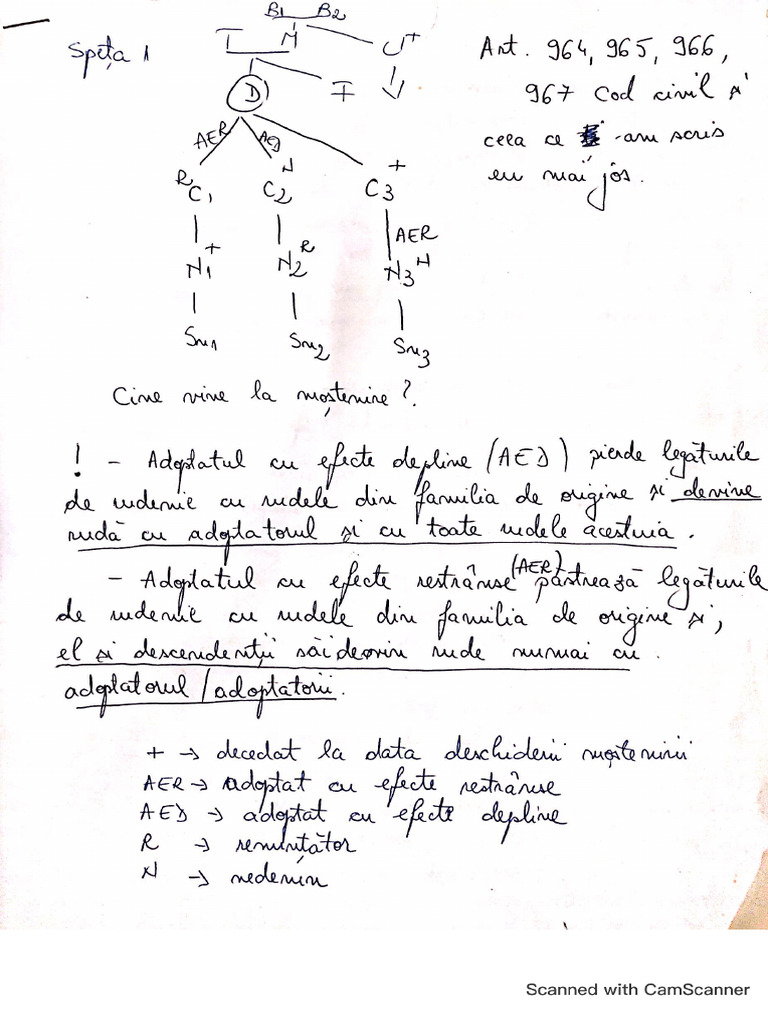 B1 B2
Speța 1
T M U+
Art. 964, 965, 966,
967 Cod civil și
ceea ce -am scris
eu mai jos.
D F V
AER AED
R C1 N C2 + C3
AER
N1+ N2R N3N
Sn1 Sn2 Sn3
Cine vine la moștenire?
! - Adoptatul cu efecte depline (AED) pierde legăturile
de rudenie cu rudele din familia de origine și devine
rudă cu adoptatorul și cu toate rudele acestuia.
- Adoptatul cu efecte restrânse (AER) păstrează legăturile
de rudenie cu rudele din familia de origine și,
el și descendenții săi devin rude numai cu
adoptatorul/adoptatorii.
+ → decedat la data deschiderii moștenirii
AER → adoptat cu efecte restrânse
AED → adoptat cu efecte depline
R → renunțător
N → nedemn
Scanned with CamScanner